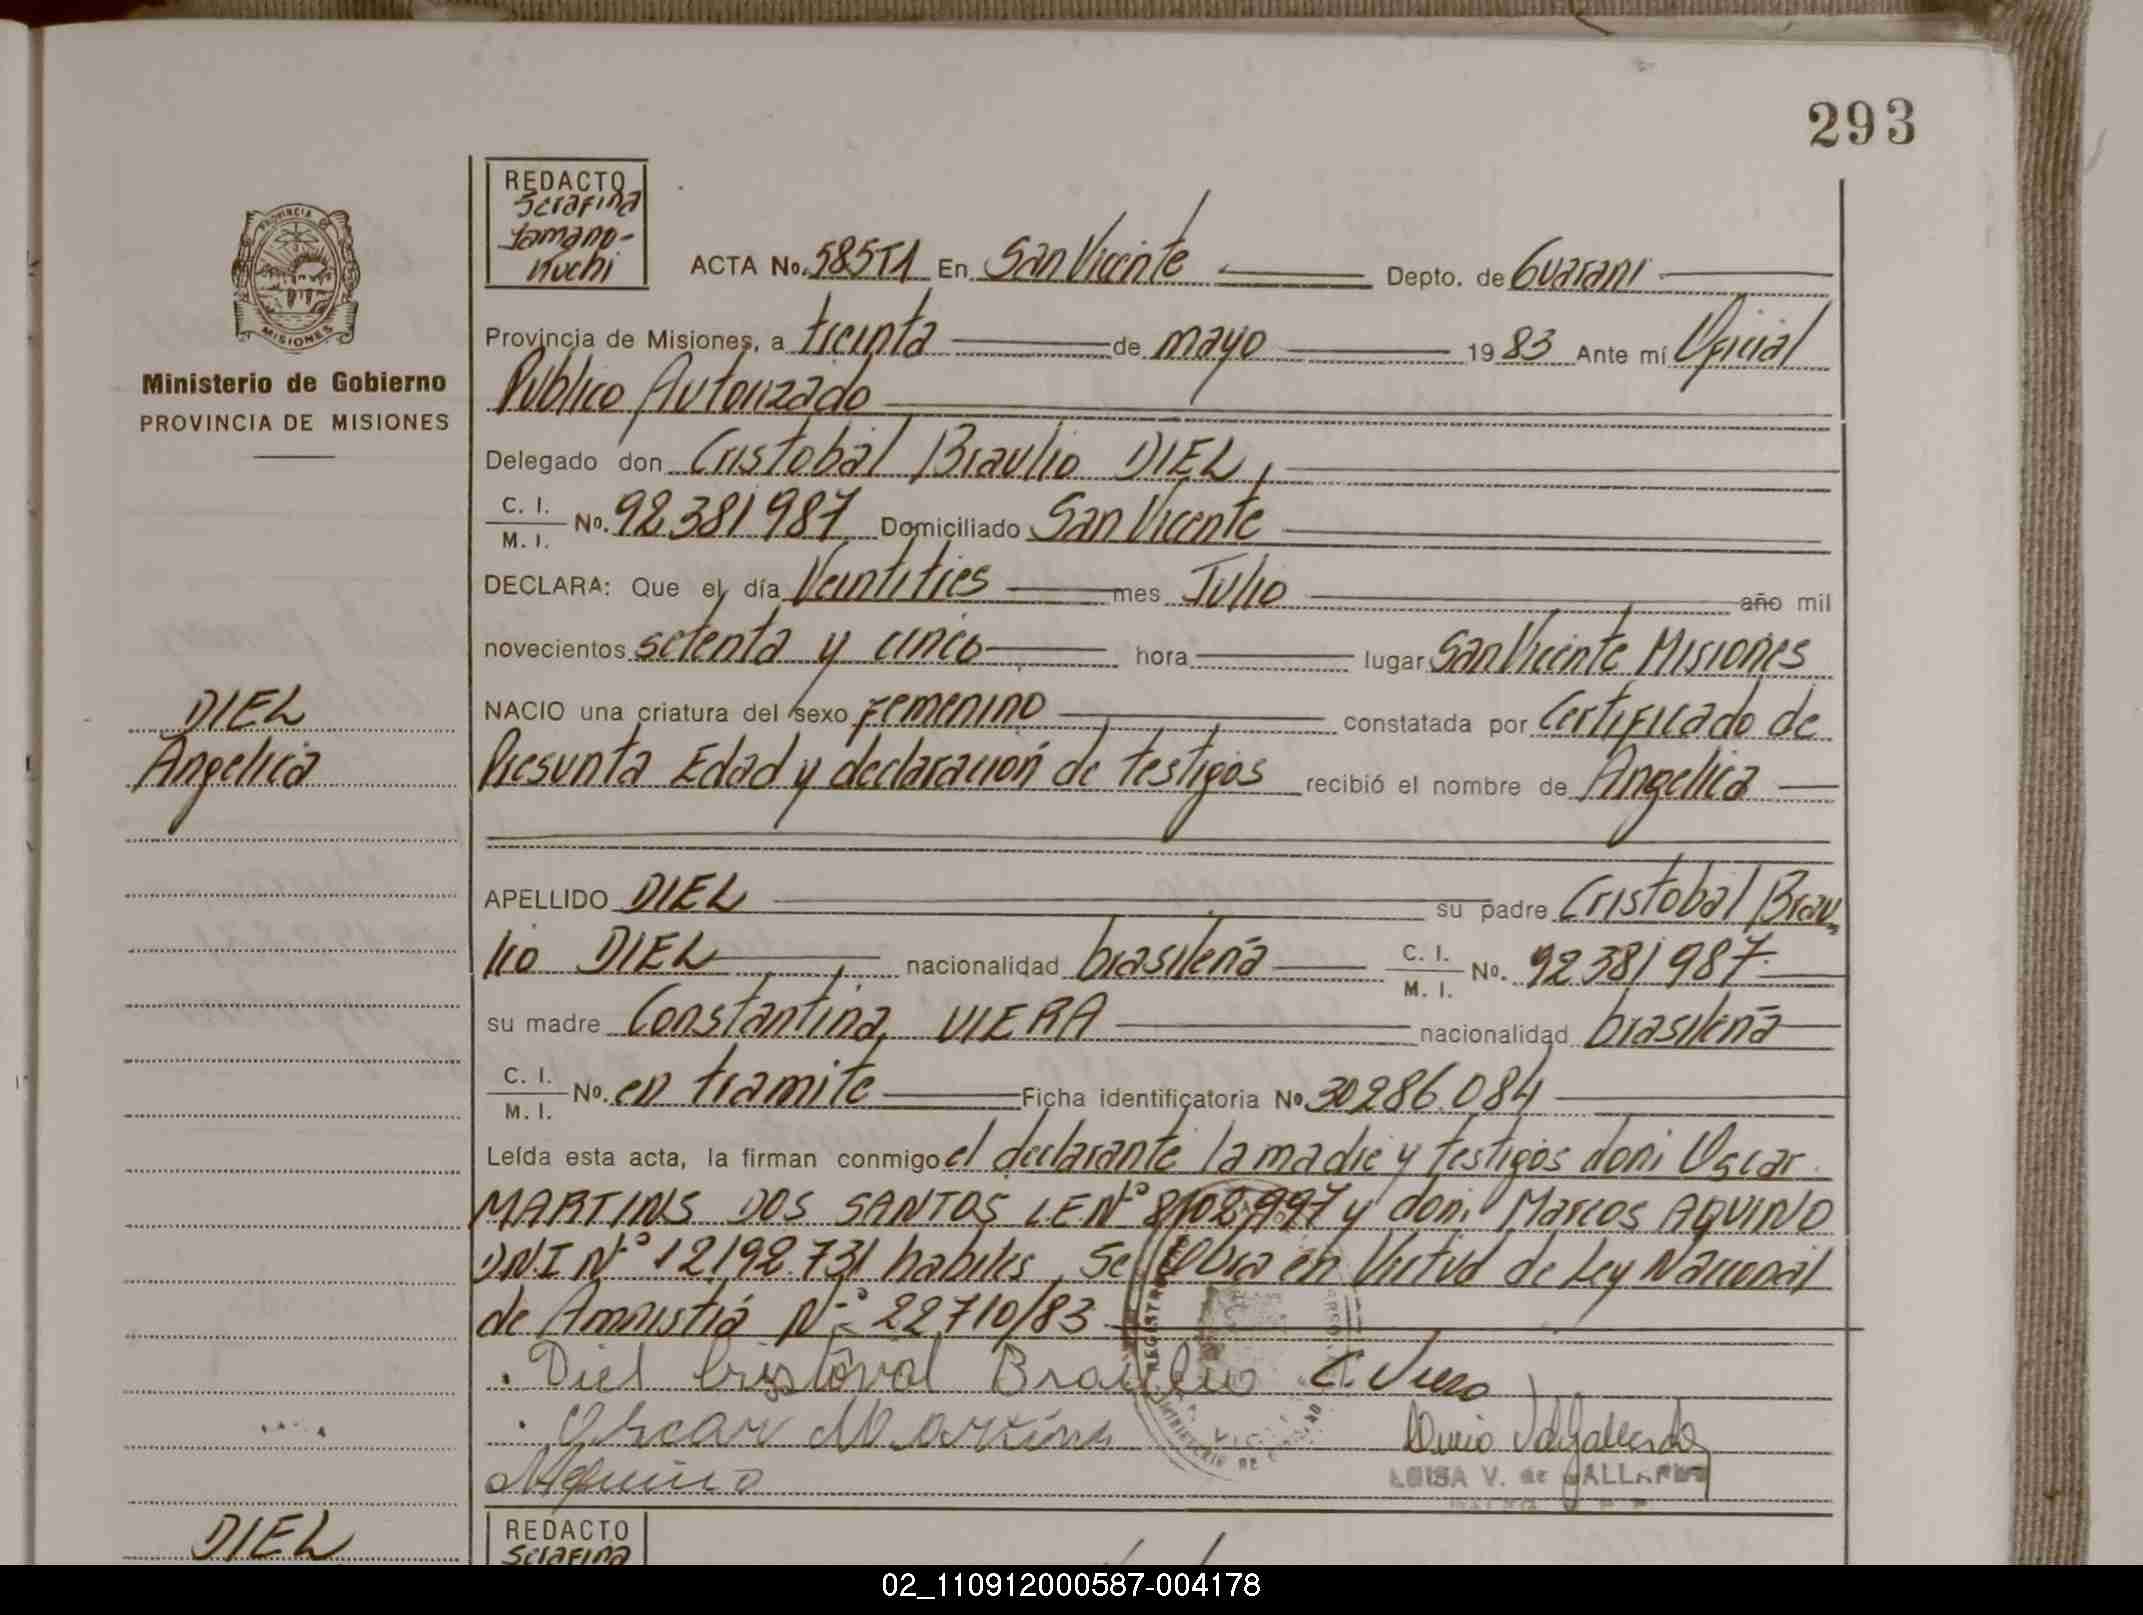 293
REDACTO
Serafina
Yamano-
Kuchi
ACTA No. 585T1 En San Vicente Depto. de Guarani
PROVINCIA DE
MISIONES
Provincia de Misiones, a treinta de mayo 1983 Ante mí Oficial
Ministerio de Gobierno
Publico Autorizado
PROVINCIA DE MISIONES
Delegado don Cristobal Braulio DIEL,
C. I.
M. I. No. 92.381987 Domiciliado San Vicente
DECLARA: Que el día Veintitres mes Julio año mil
novecientos setenta y cinco hora lugar San Vicente Misiones
DIEL
NACIO una criatura del sexo Femenino constatada por Certificado de
Angelica
Presunta Edad y declaración de testigos recibió el nombre de Angelica
APELLIDO DIEL su padre Cristobal Brau
lio DIEL nacionalidad brasileña C. I.
M. I. No. 92.381987.
su madre Constantina VIERA nacionalidad brasileña
C. I.
M. I. No. en tramite Ficha identificatoria No 30286.084
Leída esta acta, la firman conmigo el declarante la madre y testigos don: Oscar
MARTINS DOS SANTOS LE Nº 8102,997 y don: Marcos AQUINO
DNI Nº 12.192.731 habiles, Se labra en Virtud de Ley Nacional
de Amnistiá Nº 22710/83
Diel Cristoval Braulio C. Viera
Oscar Martins
LUISA V. de GALLARDO
M Aquino
DIEL
REDACTO
Serafina
02_110912000587-004178